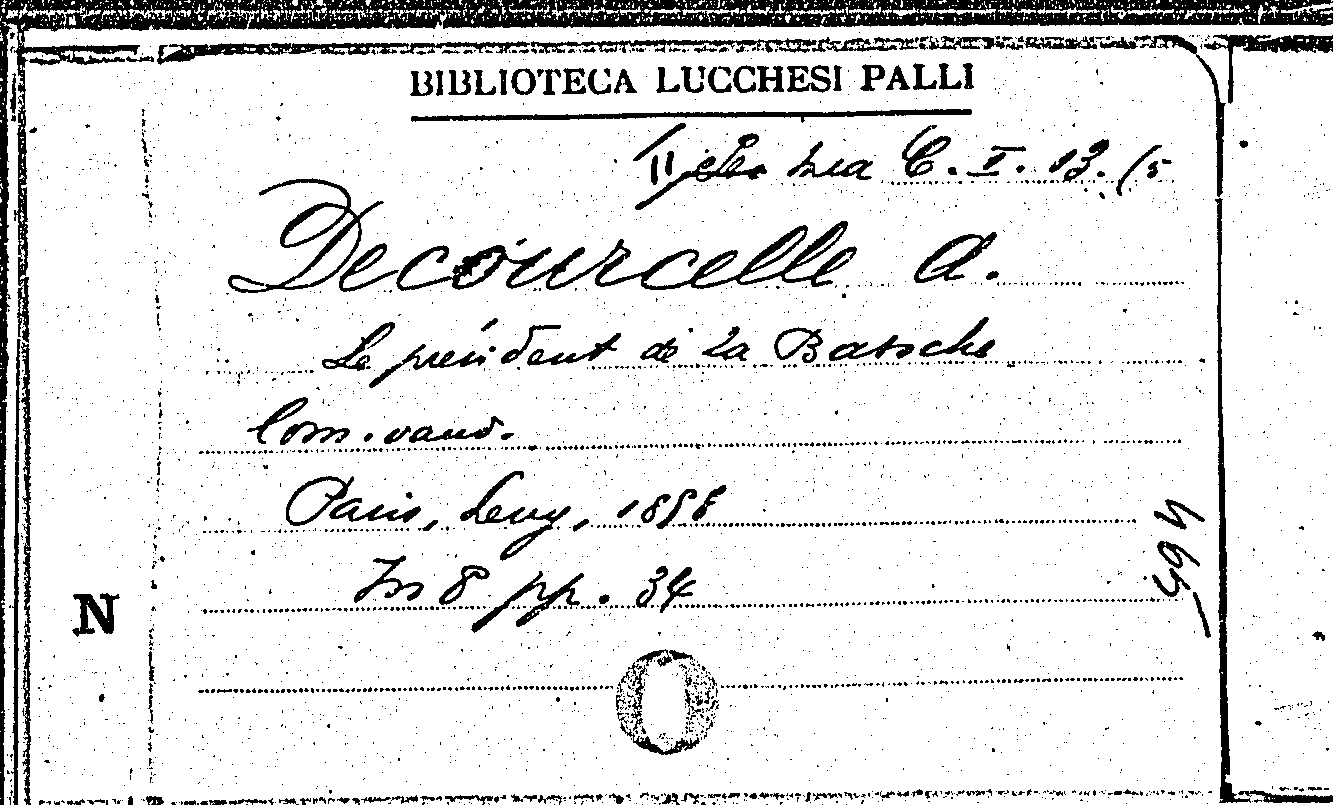 BIBLIOTECA LUCCHESI PALLI
C. I. 13. (5
Decourcelle A.
Le président de la Basoche
Com. vaud.
Paris, Levy, 1858
In 8 pp. 34
N